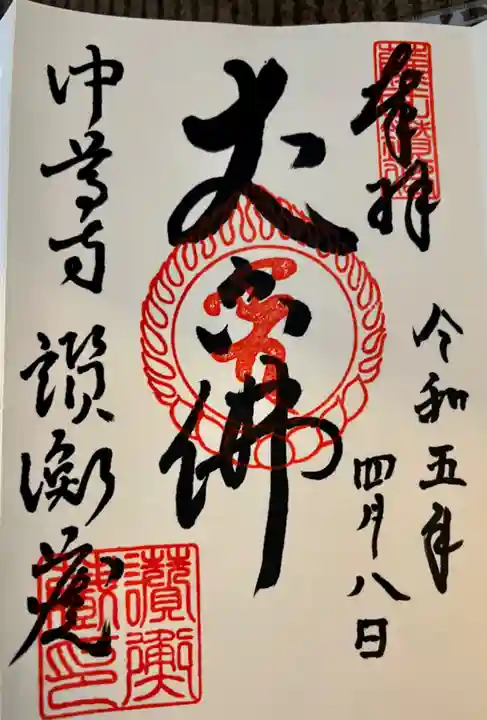 奉拝
令和五年
四月八日
丈六佛
中尊寺 讃衡蔵
讃衡蔵印